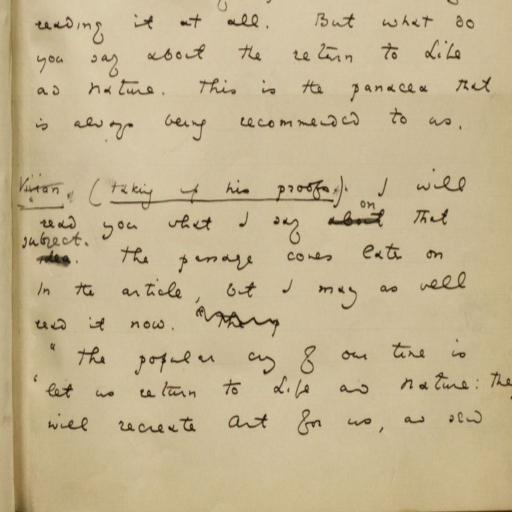 reading it at all. But what do
you say about the return to Life
and Nature. This is the panacea that
is always being recommended to us.
Vivian. (taking up his proofs.). I will
read you what I say on that
subject. The passage comes later on
in the article, but I may as well
read it now.
"The popular cry of our time is
'let us return to Life and Nature: they
will recreate Art for us, and send